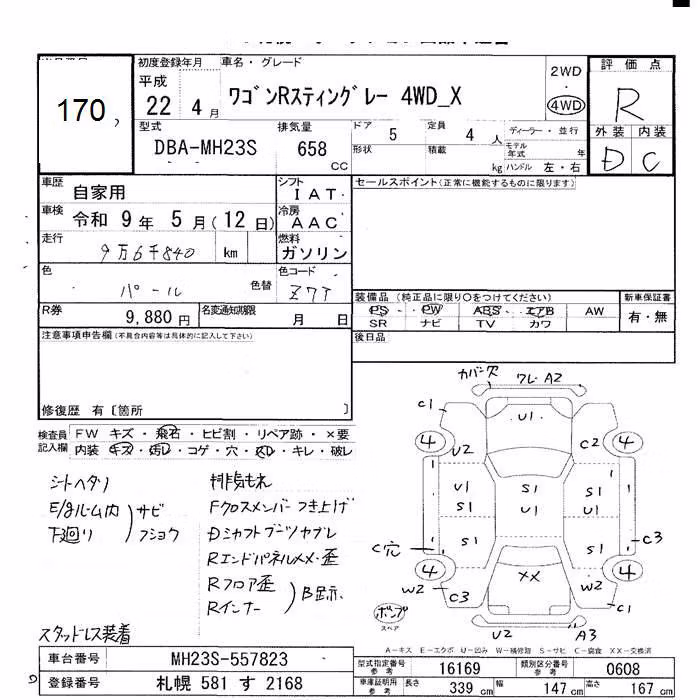 170
初度登録年月 車名・グレード
平成 22 4月
ワゴンRスティングレー 4WD_X
2WD
4WD
評価点
R
外装 内装
D C
型式 排気量
DBA-MH23S 658 CC
ドア 5 定員 4 人
形状 積載 kg
ディーラー・並行
モデル年式 年
ハンドル 左・右
車歴 自家用
車検 令和 9年 5月(12日)
走行 9万6千840 km
色 パール 色替
シフト IAT
冷房 AAC
燃料 ガソリン
色コード Z7T
R券 9,880円
名変通知期限 月 日
セールスポイント(正常に機能するものに限ります)
装備品 (純正品に限り〇をつけてください)
PS・PW・ABS・エアB・AW
SR・ナビ・TV・カワ
新車保証書
有・無
後日品
注意事項申告欄(不具合内容等は具体的に記入して下さい)
修復歴 有〔箇所 〕
検査員記入欄
FW キズ・飛石・ヒビ割・リペア跡・×要
内装 キズ・汚レ・コゲ・穴・スレ・キレ・破レ
シートヘタリ
E/gルーム内
下廻り
サビ
フショク
スタッドレス装着
排気もれ
Fクロスメンバーつき上げ
Dシャフトブーツヤブレ
Rエンドパネルメメ・歪
Rフロア歪
Rインナー
B跡示
カバー欠 ワレ A2
C1 U1
4 4
U2 C2
U1 S1 S1
S1 U1 U1
S1 S1
C穴 C3
4 4
W2 C3 XX W2 C1
ポンプ
スペア
U2 A3
A-キズ E-エクボ U-凹み W-補修跡 S-サビ C-腐食 XX-交換済
車台番号 MH23S-557823
登録番号 札幌 581 す 2168
型式指定番号 参考 16169 類別区分番号 参考 0608
車庫証明用 参考 長さ 339 cm 幅 147 cm 高さ 167 cm